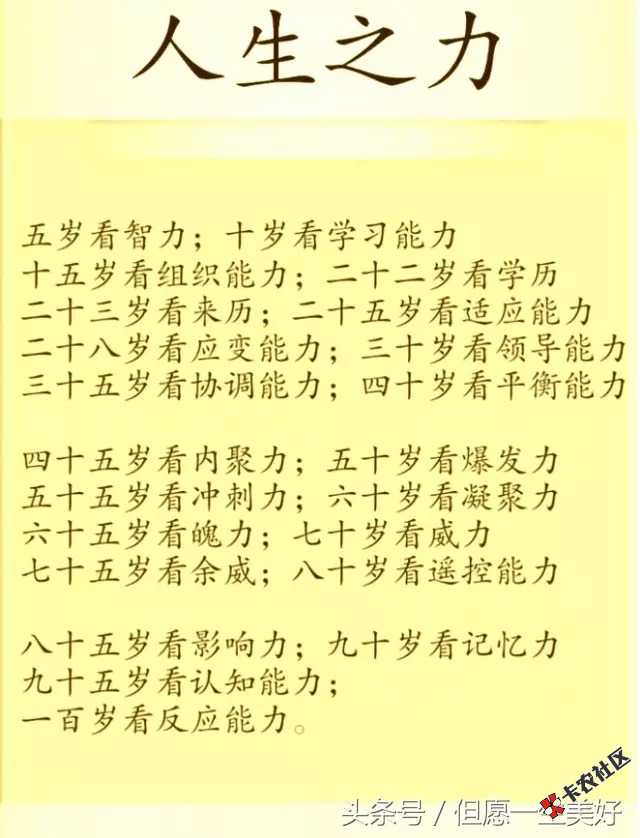 人生之力
五岁看智力；十岁看学习能力
十五岁看组织能力；二十二岁看学历
二十三岁看来历；二十五岁看适应能力
二十八岁看应变能力；三十岁看领导能力
三十五岁看协调能力；四十岁看平衡能力
四十五岁看内聚力；五十岁看爆发力
五十五岁看冲刺力；六十岁看凝聚力
六十五岁看魄力；七十岁看威力
七十五岁看余威；八十岁看遥控能力
八十五岁看影响力；九十岁看记忆力
九十五岁看认知能力；
一百岁看反应能力。
卡农社区
头条号／但愿一生美好